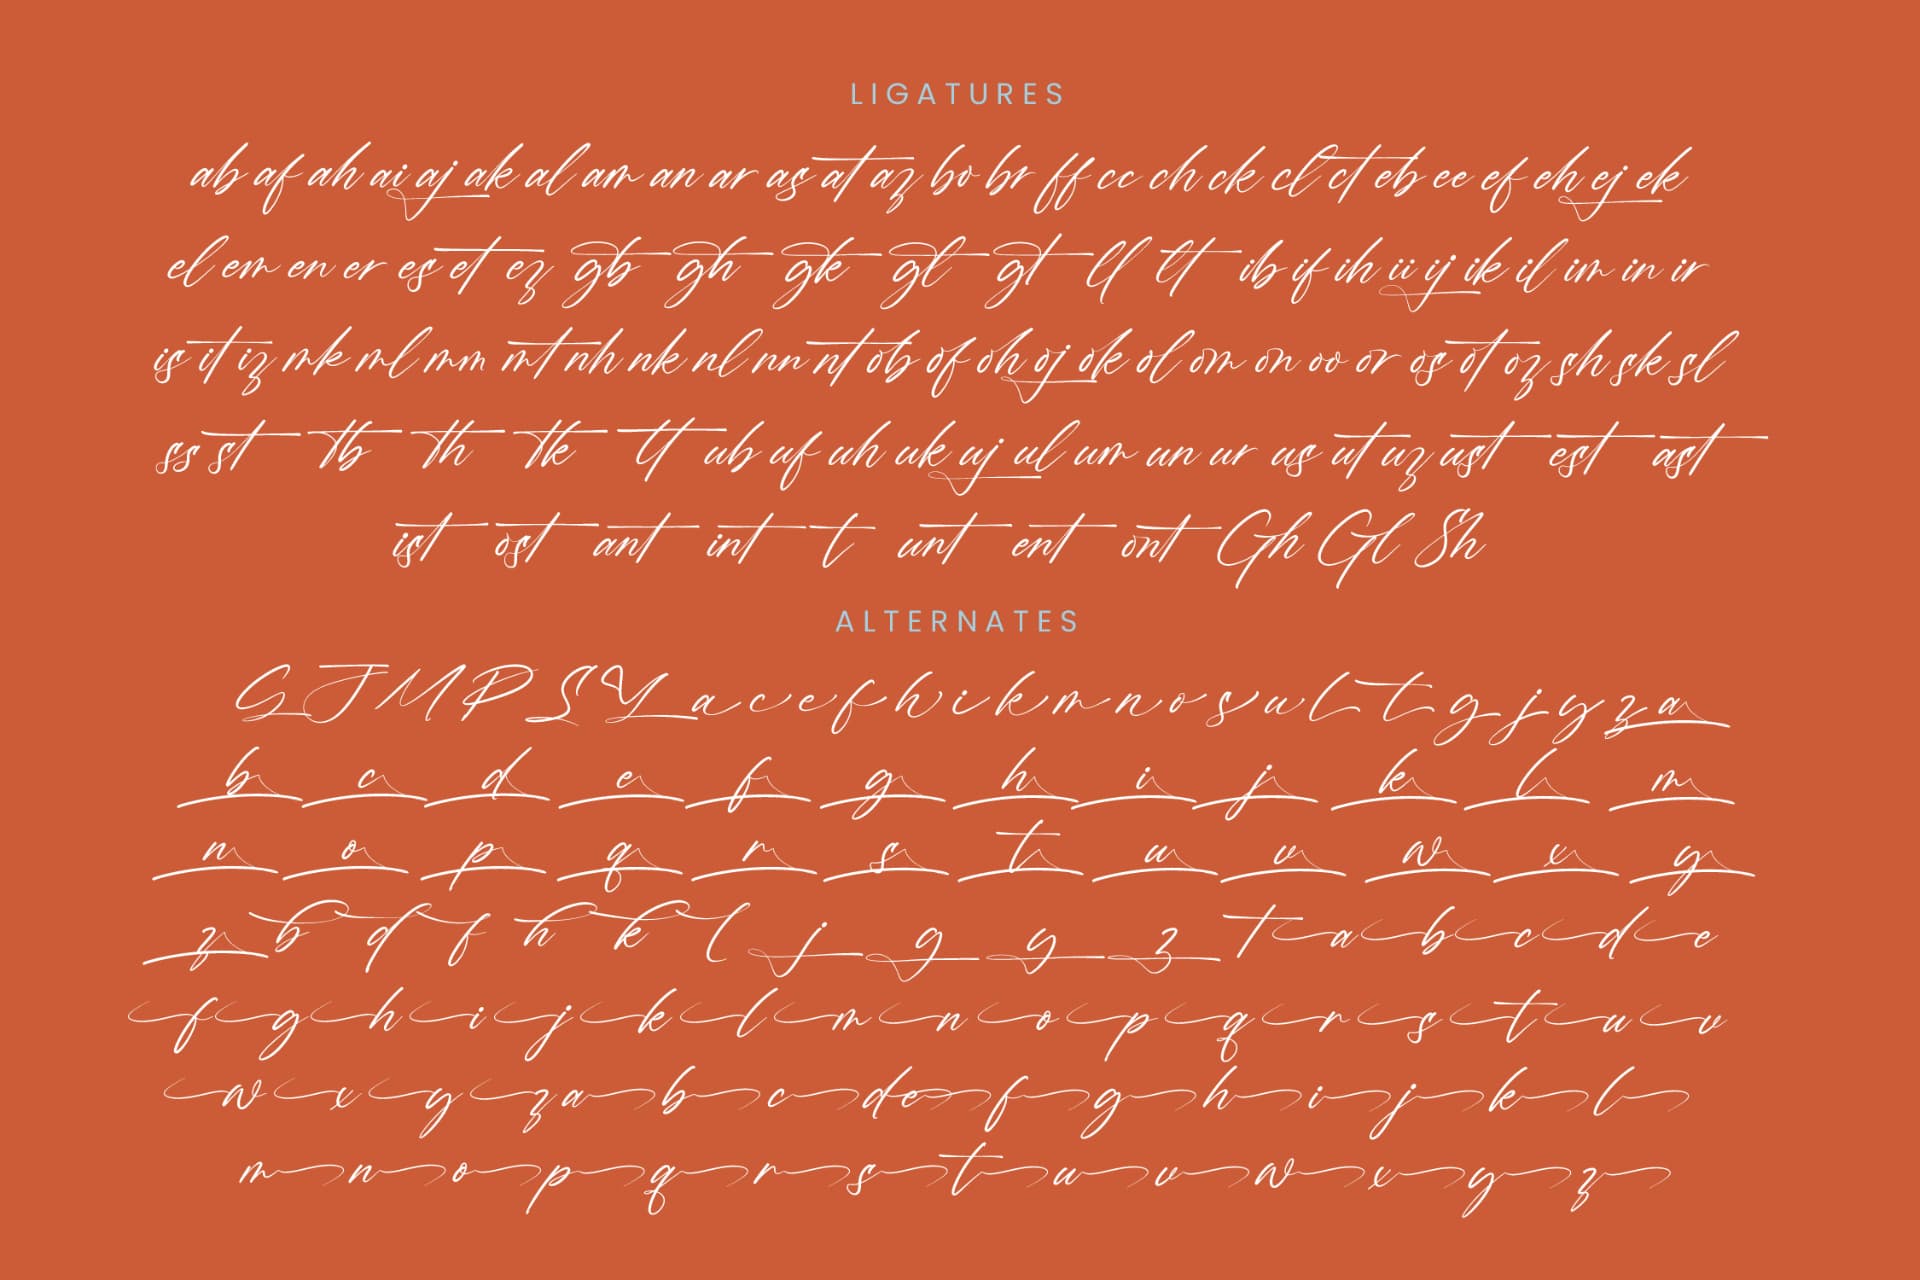 LIGATURES
ab af ah ai aj ak al am an ar as at az bo br ff cc ch ck cl ct eb ee ef eh ej ek
el em en er es et ez gb gh gk gl gt ll lt ib if ih ii ij ik il im in ir
is it iz mk ml mm mt nh nk nl nn nt ob of oh oj ok ol om on oo or os ot oz sh sk sl
ss st tb th tk tt ub uf uh uk uj ul um un ur us ut uz ust est ast
ist ost ant int t unt ent ont Gh Gl Sh
ALTERNATES
G J M P S Y a c e f h i k m n o s u l t g j y z a
b c d e f g h i j k l m
n o p q r s t u v w x y
z b d f h k l j g y z t a b c d e
f g h i j k l m n o p q r s t u v
w x y z a b c d e f g h i j k l
m n o p q r s t u v w x y z